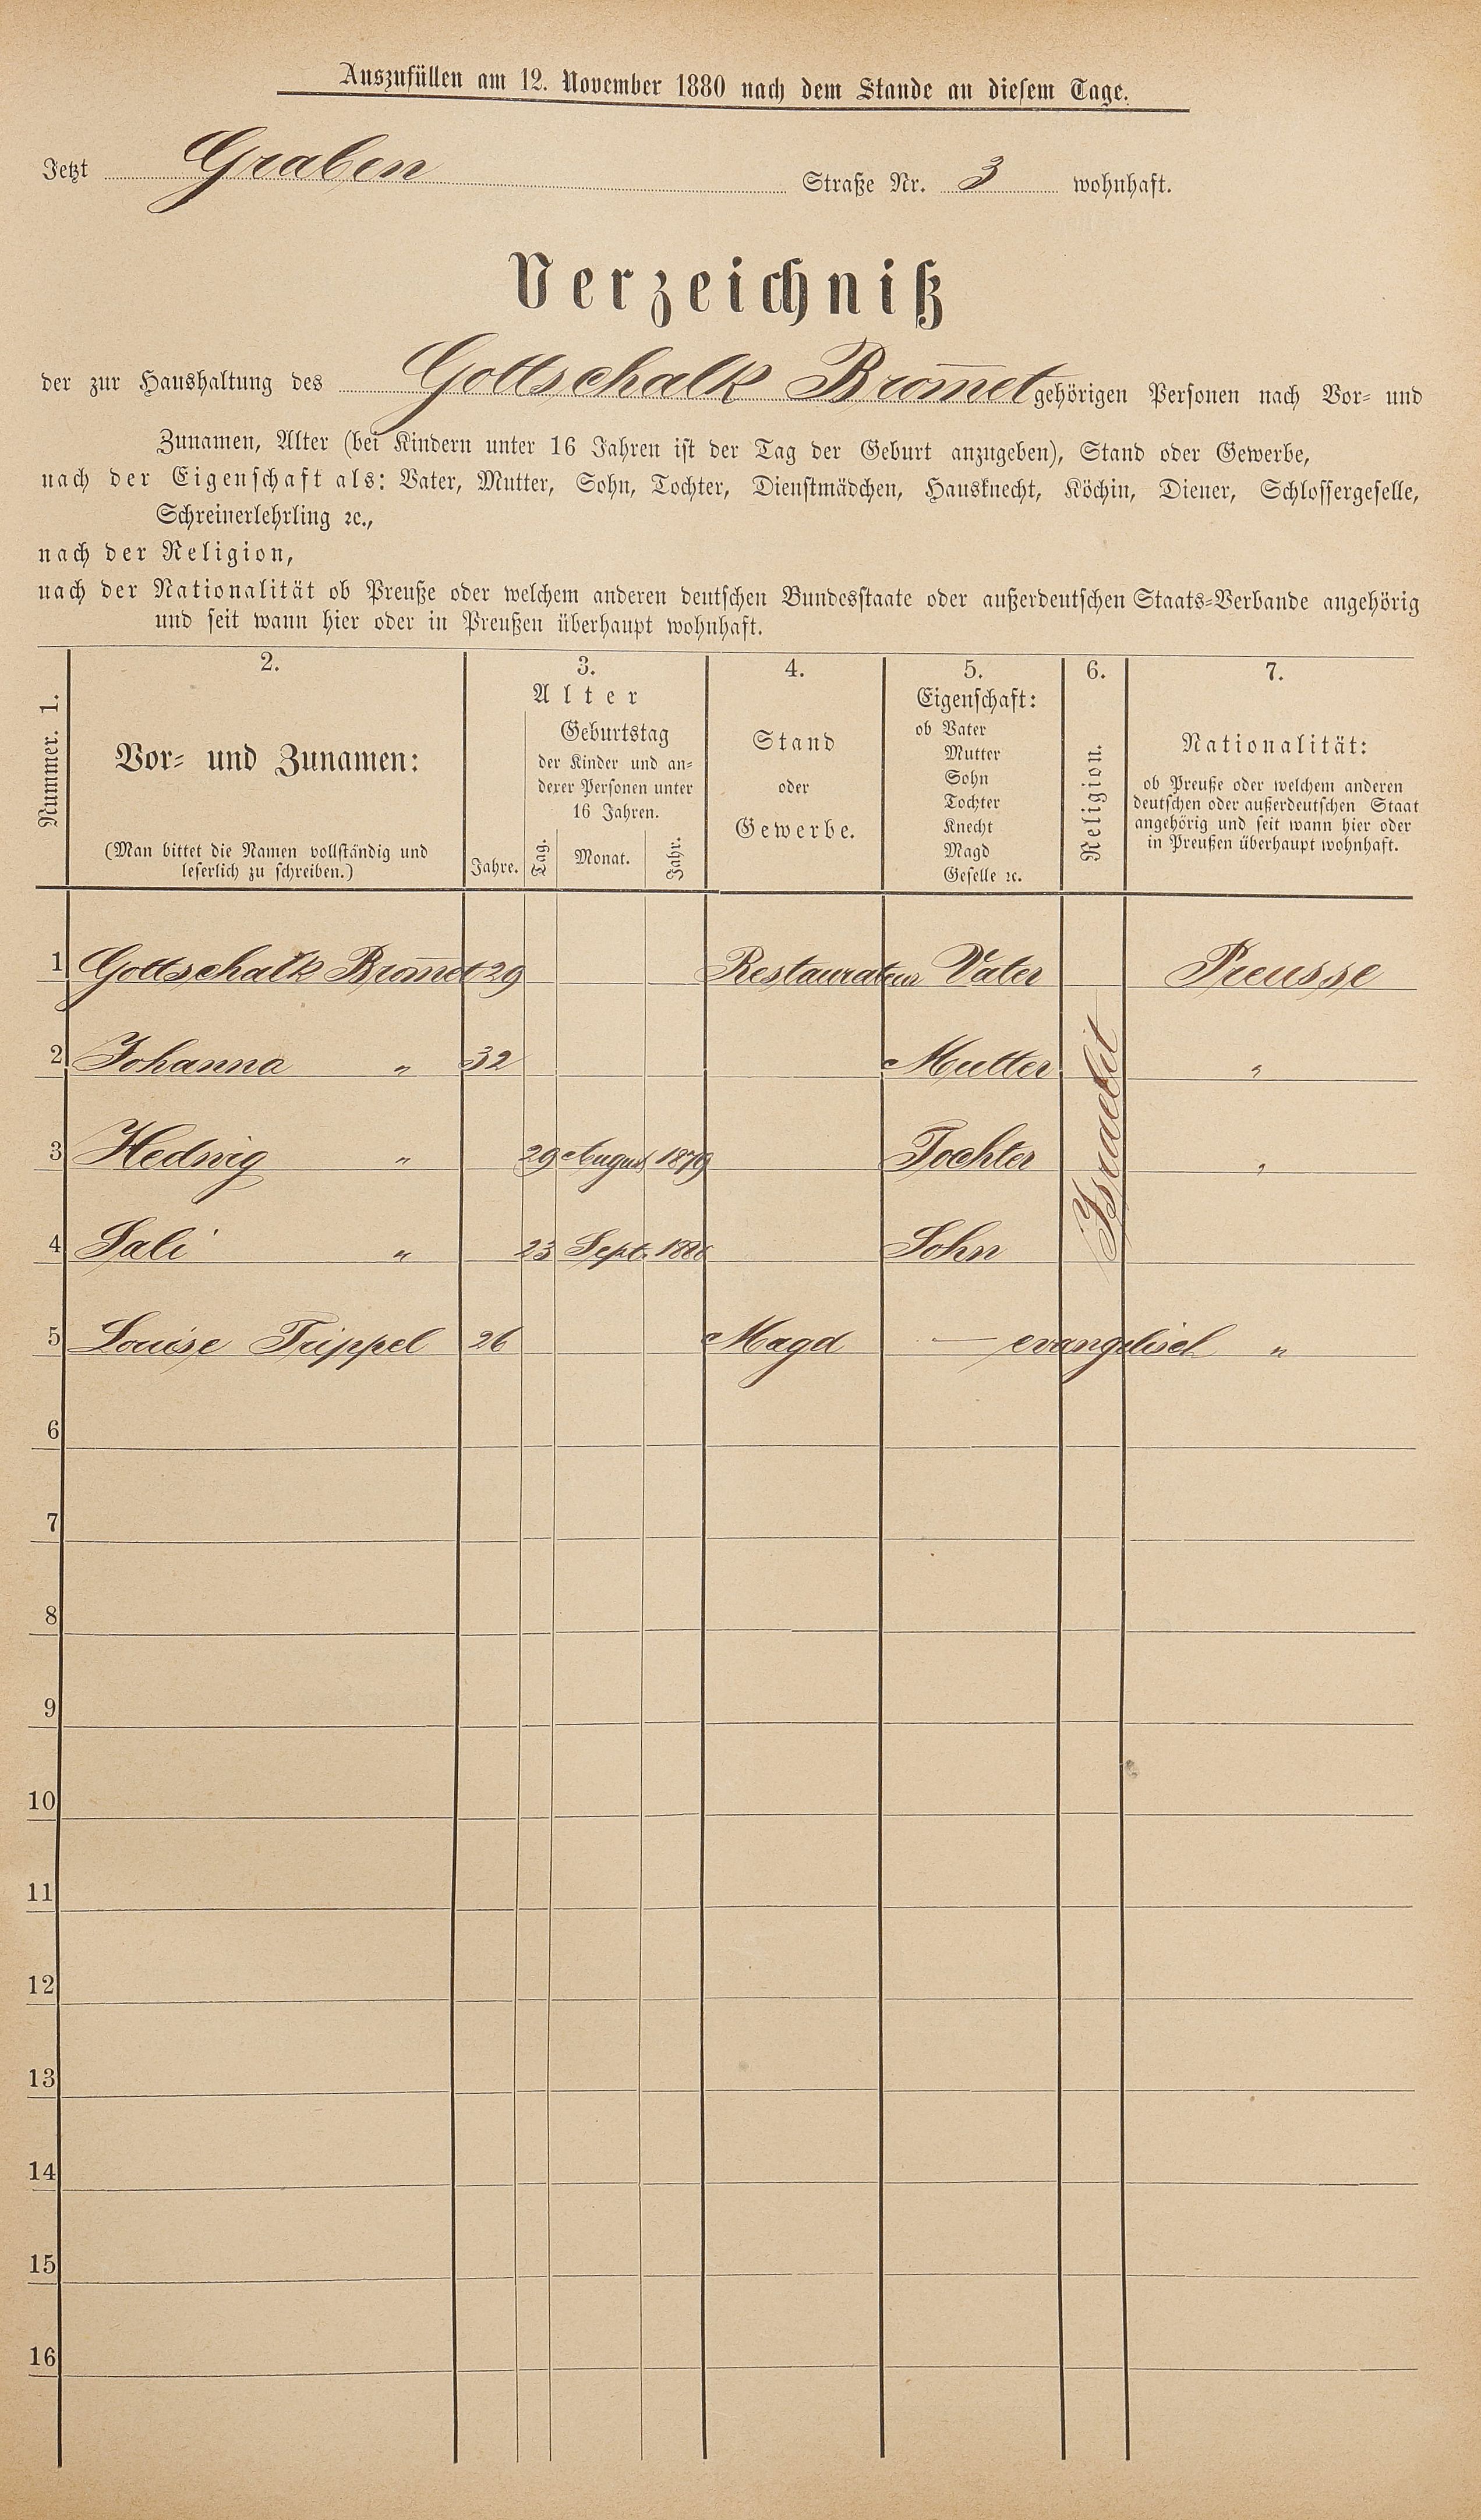 Auszufüllen am 12. November 1880 nach dem Stande an diesem Tage.
Jetzt Graben Straße Nr. 3 wohnhaft.
Verzeichniß
der zur Haushaltung des Gottschalk Brom̅et gehörigen Personen nach Vor- und
Zunamen, Alter (bei Kindern unter 16 Jahren ist der Tag der Geburt anzugeben), Stand oder Gewerbe,
nach der Eigenschaft als: Vater, Mutter, Sohn, Tochter, Dienstmädchen, Hausknecht, Köchin, Diener, Schlossergeselle,
Schreinerlehrling ꝛc.,
nach der Religion,
nach der Nationalität ob Preuße oder welchem anderen deutschen Bundesstaate oder außerdeutschen Staats-Verbande angehörig
und seit wann hier oder in Preußen überhaupt wohnhaft.
Nummer. 1.
2.
Vor- und Zunamen:
(Man bittet die Namen vollständig und
leserlich zu schreiben.)
3.
Alter
Jahre.
Geburtstag
der Kinder und an-
derer Personen unter
16 Jahren.
Tag. Monat. Jahr.
4.
Stand
oder
Gewerbe.
5.
Eigenschaft:
ob Vater
Mutter
Sohn
Tochter
Knecht
Magd
Geselle ꝛc.
6.
Religion.
7.
Nationalität:
ob Preuße oder welchem anderen
deutschen oder außerdeutschen Staat
angehörig und seit wann hier oder
in Preußen überhaupt wohnhaft.
1 Gottschalk Brom̅et 29 Restaurateur Vater Preusse
2 Johanna " 32 Mutter "
Israelit
3 Hedwig " 29 August 1879 Tochter "
4 Sali " 23 Sept. 1880 Sohn
5 Louise Trippel 26 Magd — evangelisch "
6
7
8
9
10
11
12
13
14
15
16